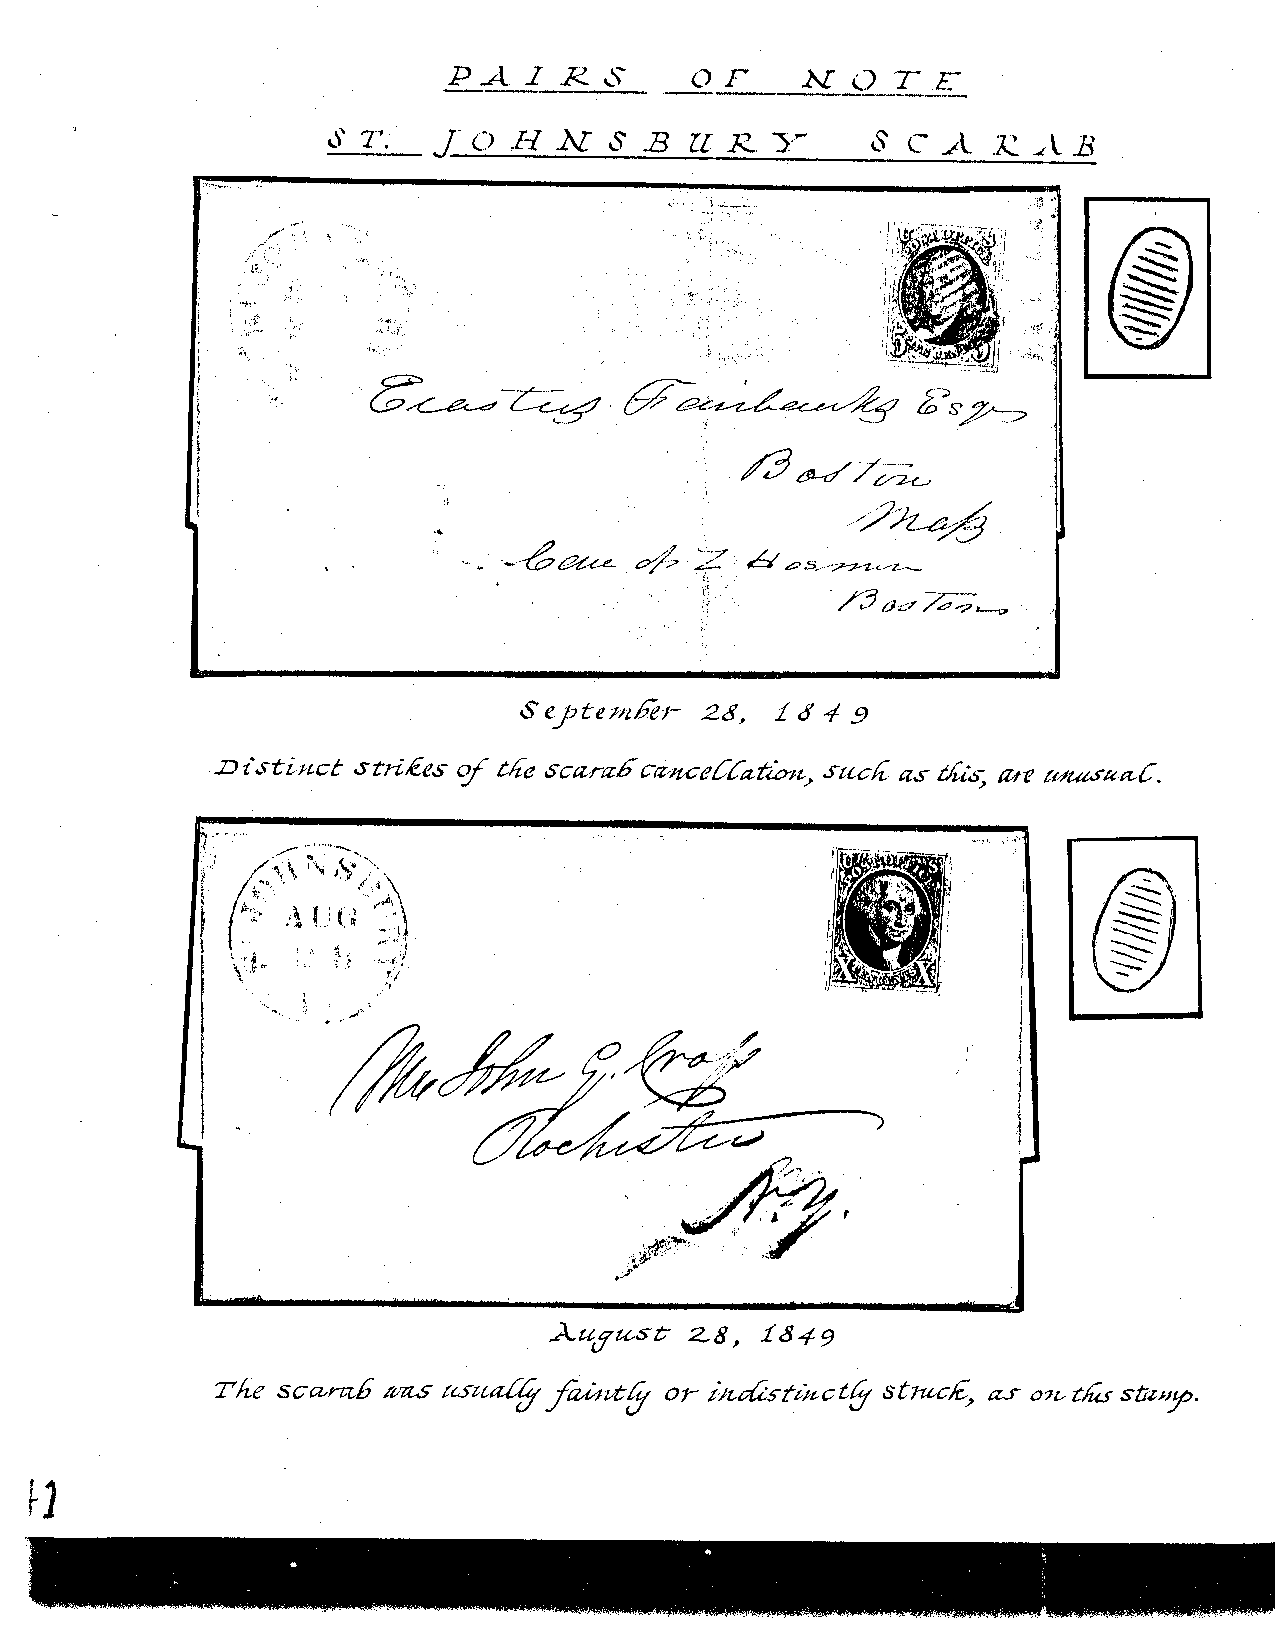 PAIRS OF NOTE
ST. JOHNSBURY SCARAB
Erastus Fairbanks Esq
Boston
Mass
Care of Z Hosmer
Boston
September 28, 1849
Distinct strikes of the scarab cancellation, such as this, are unusual.
ST. JOHNSBURY
AUG
28
POST OFFICE
X X
Mr John G. Cross
Rochester
N.Y.
August 28, 1849
The scarab was usually faintly or indistinctly struck, as on this stamp.